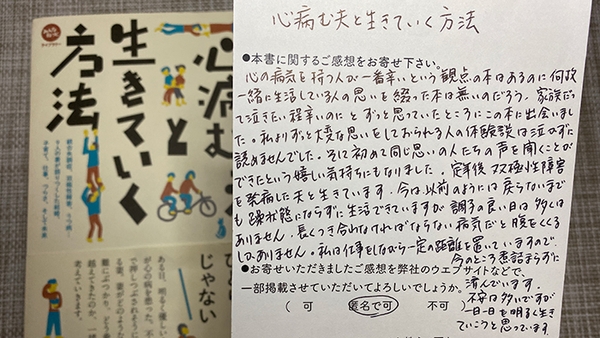 心病む
と
生きていく
方法
統合失調症、双極性障害、うつ病…
9人の妻が語りつくした結婚、
子育て、仕事、つらさ、そして未来
じゃない
ある日、明るく優しい
が心の病を患った。不
で押しつぶされそうに
る妻。妻がどのような
難にぶつかり、どう乗
越えてきたのか、一
考えていきます。
心病む夫と生きていく方法
●本書に関するご感想をお寄せ下さい。
心の病気を持つ人が一番辛いという観点の本はあるのに何故
一緒に生活している人の思いを綴った本は無いのだろう、家族だっ
て泣きたい程辛いのに とずっと思っていたところにこの本に出会いまし
た。私よりずっと大変な思いをしておられる人の体験談は泣かずに
読めませんでした。そして初めて同じ思いの人たちの声を聞くことが
できたという嬉しい気持ちにもなりました。定年後 双極性障害
を発病した夫と生きています。今は以前のようには戻らないまで
も躁状態にならずに生活できていますが 調子の良い日は多くは
ありません。長くつき合わなければならない病気だと腹をくくる
しかありません。私は仕事をしながら一定の距離を置いていますので、
今のところ煮詰まらずに
済んでいます。
不安は多いですが
一日一日を明るく生き
ていこうと思っています。
●お寄せいただきましたご感想を弊社のウェブサイトなどで、
一部掲載させていただいてよろしいでしょうか。
（ 可 匿名で可 不可 ）